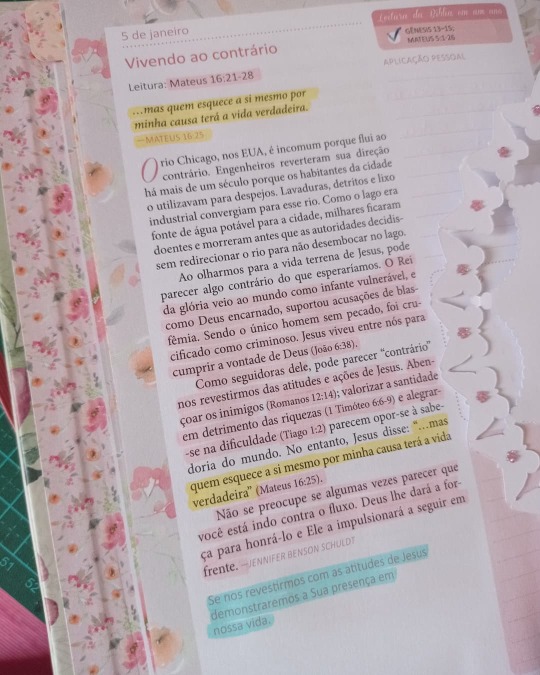 5 de janeiro
Leitura da Bíblia em um ano
GÊNESIS 13–15;
MATEUS 5:1-26
Vivendo ao contrário
APLICAÇÃO PESSOAL
Leitura: Mateus 16:21-28
...mas quem esquece a si mesmo por
minha causa terá a vida verdadeira.
—MATEUS 16:25
O rio Chicago, nos EUA, é incomum porque flui ao
contrário. Engenheiros reverteram sua direção
há mais de um século porque os habitantes da cidade
o utilizavam para despejos. Lavaduras, detritos e lixo
industrial convergiam para esse rio. Como o lago era
fonte de água potável para a cidade, milhares ficaram
doentes e morreram antes que as autoridades decidis-
sem redirecionar o rio para não desembocar no lago.
Ao olharmos para a vida terrena de Jesus, pode
parecer algo contrário do que esperaríamos. O Rei
da glória veio ao mundo como infante vulnerável, e
como Deus encarnado, suportou acusações de blas-
fêmia. Sendo o único homem sem pecado, foi cru-
cificado como criminoso. Jesus viveu entre nós para
cumprir a vontade de Deus (João 6:38).
Como seguidoras dele, pode parecer “contrário”
nos revestirmos das atitudes e ações de Jesus. Aben-
çoar os inimigos (Romanos 12:14); valorizar a santidade
em detrimento das riquezas (1 Timóteo 6:6-9) e alegrar-
-se na dificuldade (Tiago 1:2) parecem opor-se à sabe-
doria do mundo. No entanto, Jesus disse: “...mas
quem esquece a si mesmo por minha causa terá a vida
verdadeira” (Mateus 16:25).
Não se preocupe se algumas vezes parecer que
você está indo contra o fluxo. Deus lhe dará a for-
ça para honrá-lo e Ele a impulsionará a seguir em
frente. —JENNIFER BENSON SCHULDT
Se nos revestirmos com as atitudes de Jesus
demonstraremos a Sua presença em
nossa vida.
51
52